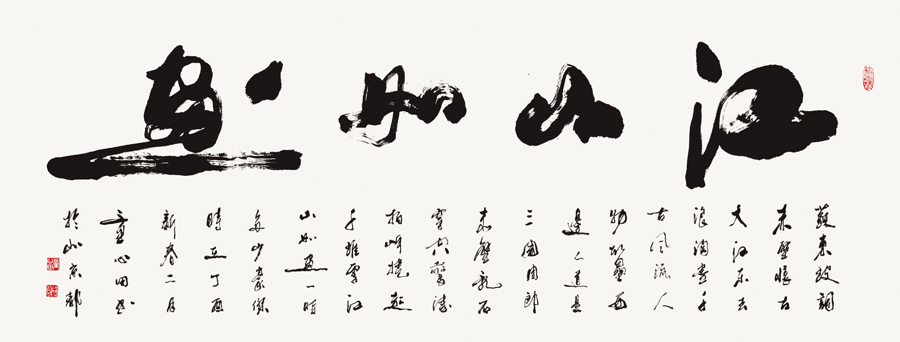 江山如畫
蘇東坡詞
赤壁懷古
大江東去
浪淘盡千
古風流人
物故壘西
邊人道是
三國周郎
赤壁亂石
穿空驚濤
拍岸捲起
千堆雪江
山如畫一時
多少豪傑
時在丁酉
新春二月
心田書
於北京